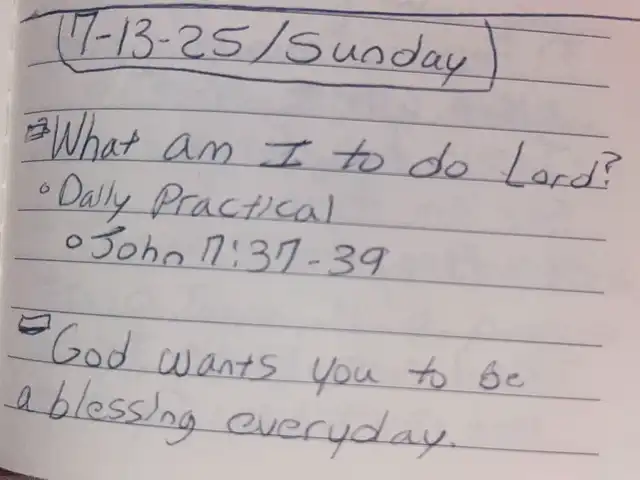 7-13-25/Sunday
What am I to do Lord?
Daily Practical
John 7:37-39
God wants you to be
a blessing everyday.